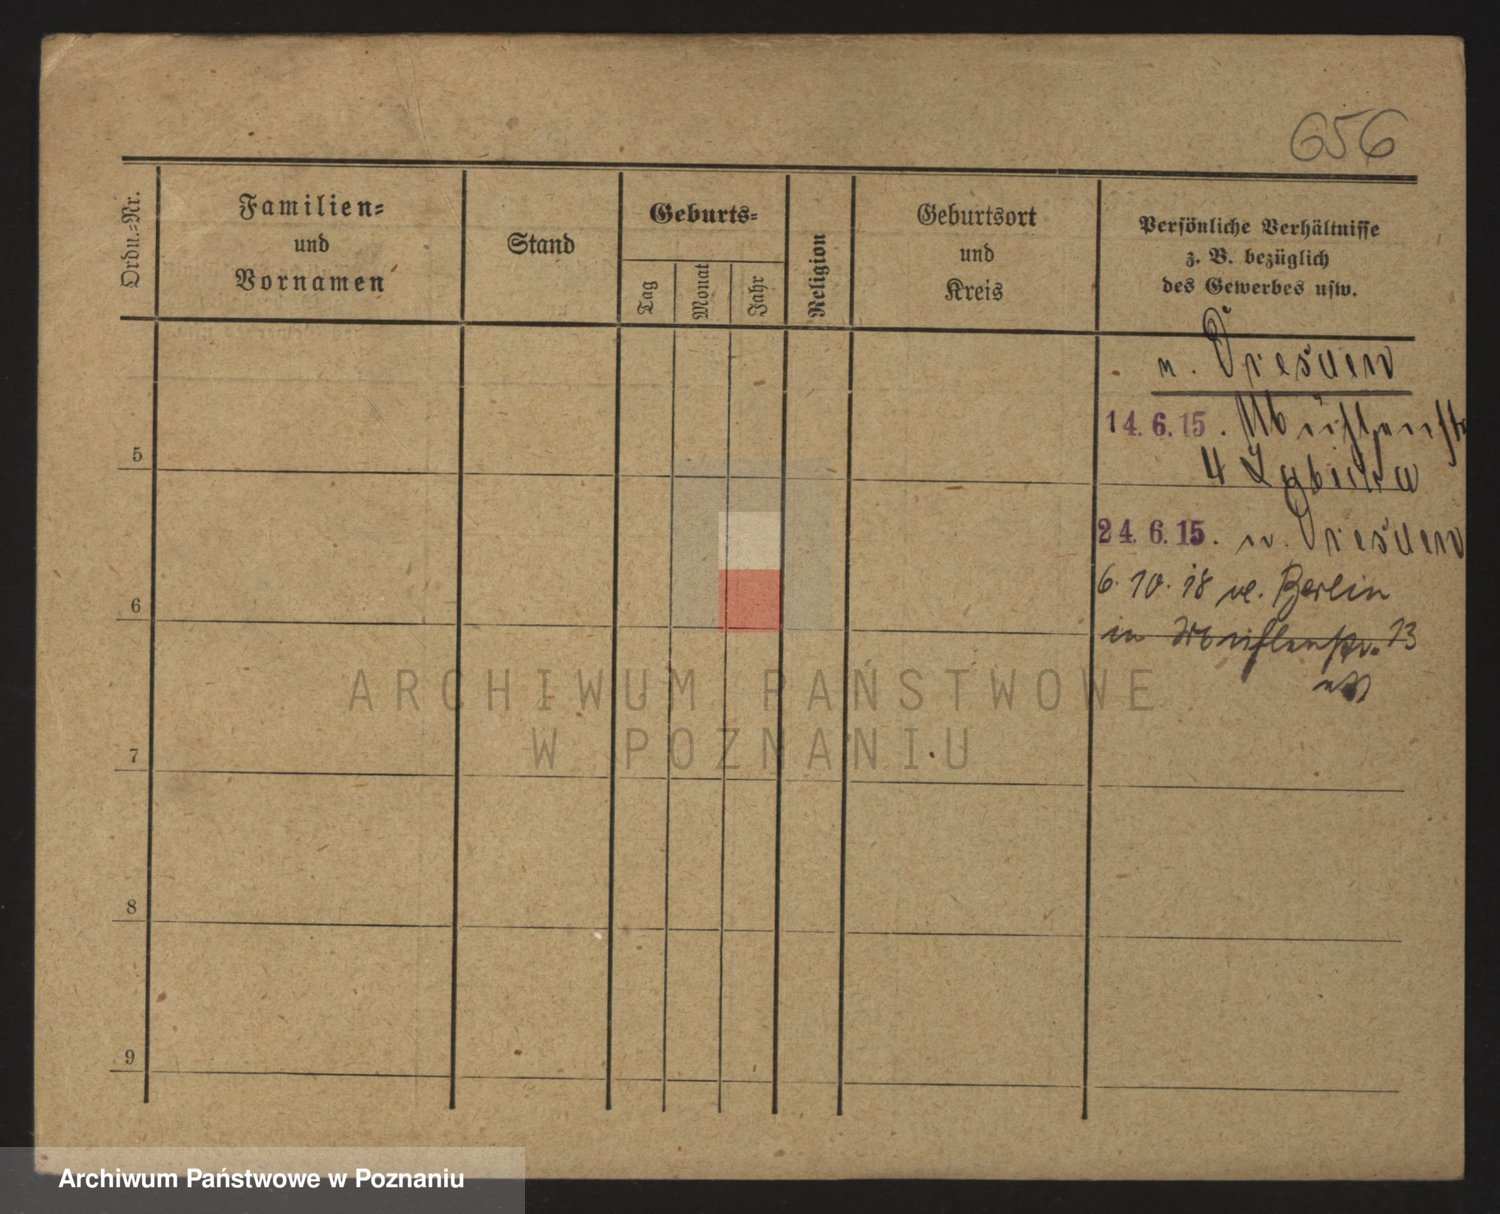 656
Ordn.-Nr.
Familien-
und
Vornamen
Stand
Geburts-
Tag
Monat
Jahr
Religion
Geburtsort
und
Kreis
Persönliche Verhältnisse
z. B. bezüglich
des Gewerbes usw.
n. Dresden
14.6.15. Mühlenstr
4 Zybicka
5
24.6.15. n. Dresden
6.10.18 Berlin
6
in Mühlenstr. 13
7
8
9
ARCHIWUM PAŃSTWOWE
W POZNANIU
Archiwum Państwowe w Poznaniu